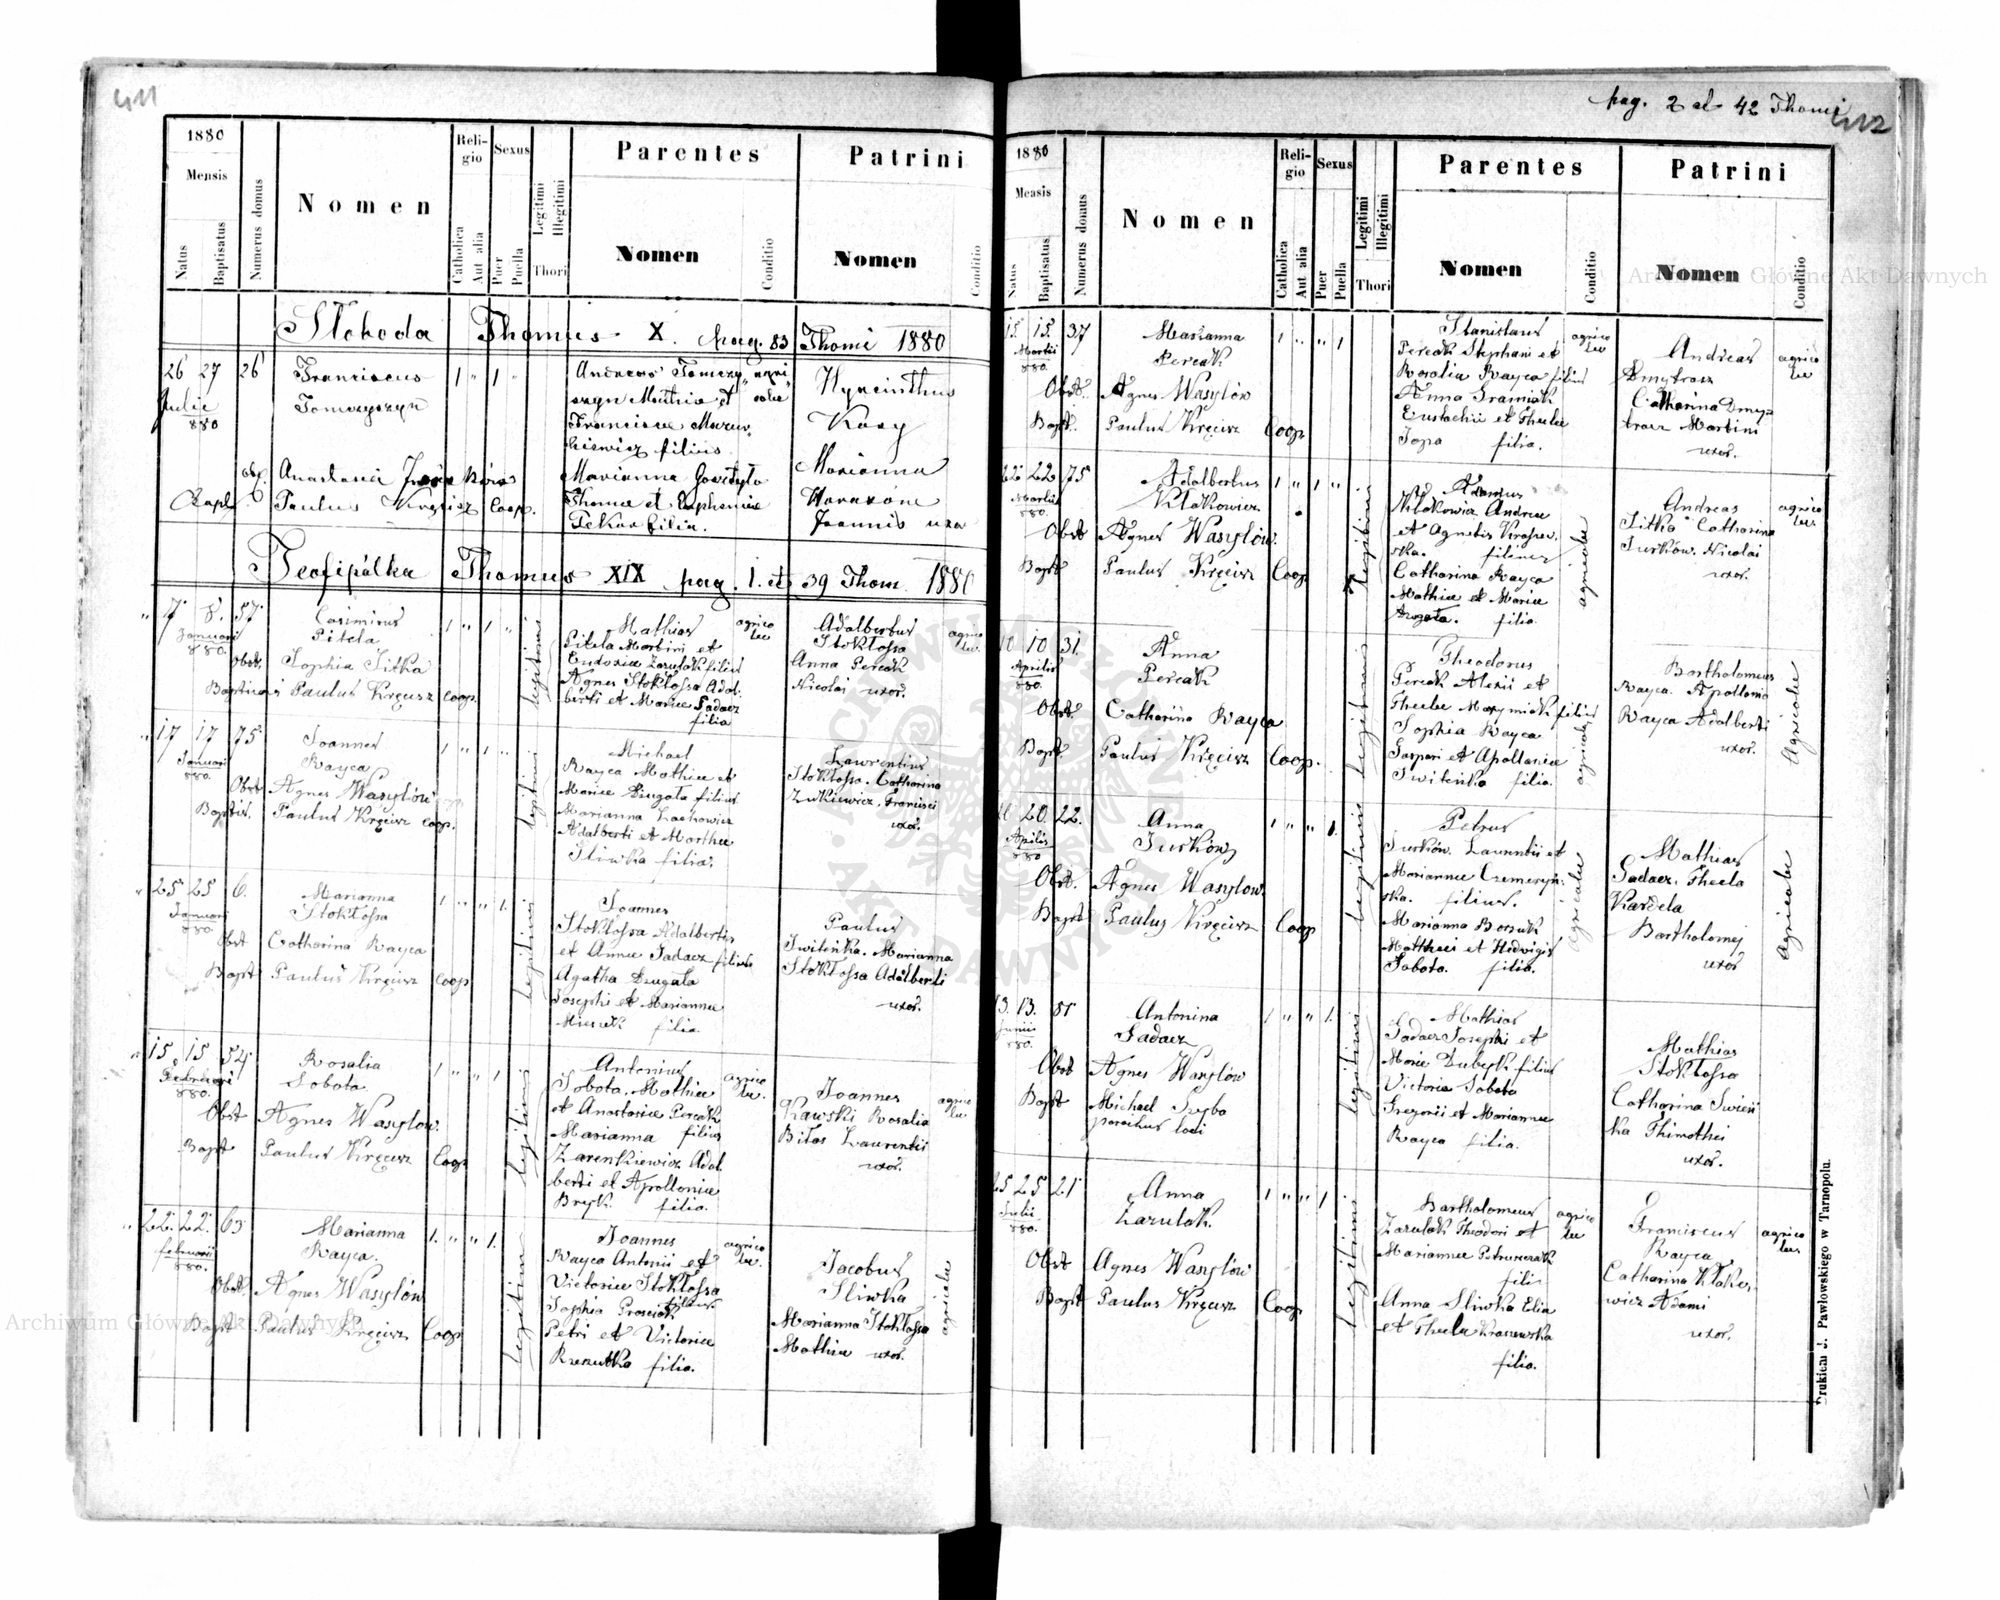 411
1880
Mensis
Natus
Baptisatus
Numerus domus
Nomen
Religio
Catholica
Aut alia
Sexus
Puer
Puella
Legitimi
Illegitimi
Thori
Parentes
Nomen
Conditio
Patrini
Nomen
Conditio
Słoboda Thomus X. pag. 83 Thomi 1880
26 27 26
Julii
880
Franciscus
Tomczyszyn
1 " 1 "
Andreas Tomczy
szyn Mathiae et
Franciscae Mazur
kiewicz filius
Marianna
Thomae et Euphemiae
Pekar filia
agri
colae
Hyacinthus
Kosy
Marianna
Joannis uxor
Anastasia
Paulus Kręcisz Coop.
Teofipólka Thomus XIX pag. 1. et 39 Thom. 1880
" 7 8. 57
Januari
880.
Casimirus
Pitela
1 " 1 "
Obst. Sophia Sitka
Baptisavi Paulus Kręcisz Coop.
legitimi
Mathias
Pitela Martini et
Eudoxiae Zarulak filius
Agnes Stokłossa Adal.
berti et Mariae Sadacz
filia
agrico
lae
Adalbertus
Stokłossa
Anna Percak
Nicolai uxor.
agrico
lae.
" 17 17 75
Januari
880.
Joannes
Rayca
1 " 1 "
Obst Agnes Wasylów
Baptis. Paulus Kręcisz Coop.
legitimi
Michael
Rayca Mathiae et
Mariae Długota filius
Marianna Lachowicz
Adalberti et Marthae
Sliwka filia.
Laurentius
Stokłossa. Catharina
Zukiewicz. Francisci
uxor.
" 25 25 6.
Januari
880
Marianna
Stokłossa
1 " " 1.
Obst Catharina Rayca
Bapt Paulus Kręcisz Coop
legitimi
Joannes
Stokłossa Adalberti
et Annae Sadacz filius
Agatha Długota
Josephi et Mariannae
filia.
Paulus
Switeńka. Marianna
Stokłossa Adalberti
uxor.
" 15 15 54
Februari
880.
Rosalia
Sobota
1 " " 1
Obst Agnes Wasylów.
Bapt Paulus Kręcisz Coop
legitimi
Antonius
Sobota. Mathiae
et Anastasiae Percak
Marianna filius
Zarenkiewicz Adal.
berti et Apolloniae
Bryk. filia.
agrico
lae.
Joannes
Kawski Rosalia
Bilas Laurentii
uxor.
agrico
lae
" 22. 22. 63
februarii
880.
Marianna
Rayca.
1. " " 1.
Obst. Agnes Wasylów
Bapt Paulus Kręcisz Coop
legitimi
Joannes
Rayca Antonii et
Victoriae Stokłossa
filius.
Sophia Prosciak
Petri et Victoriae
filia.
agrico
lae.
Jacobus
Sliwka
Marianna Stokłossa
Mathiae uxor.
agricolae
pag. 2 et 42 Thomi
412
1880
Mensis
Natus
Baptisatus
Numerus domus
Nomen
Religio
Catholica
Aut alia
Sexus
Puer
Puella
Legitimi
Illegitimi
Thori
Parentes
Nomen
Conditio
Patrini
Nomen
Conditio
15. 15. 37
Martii
880.
Marianna
Percak
1 " " 1
Obst. Agnes Wasylów
Bapt. Paulus Kręcisz Coop
Stanislaus
Percak Stephani et
Rosalia Rayca filius
Anna Framiak
Eustachii et Theclae
Sopa filia.
agrico
lae
Andreas
Dmytrasz
Catharina Dmy
trasz Martini
uxor.
agrico
lae
22 22 75
Martii
880.
Adalbertus
Kłakowicz
1 " 1 "
Obst Agnes Wasylów.
Bapt Paulus Kręcisz Coop
legitimi
Adamus
Kłakowicz Andreae
et Agnetis
filius
Catharina Rayca
Mathiae et Mariae
Długota. filia.
agricolae
Andreas
Sitka Catharina
Jurków. Nicolai
uxor.
agrico
lae.
10 10 31.
Aprilis
880.
Anna
Percak
Obst. Catharina Rayca
Bapt. Paulus Kręcisz Coop.
legitimi
Theodorus
Percak Alexii et
Theclae Maxymiak filius
Sophia Rayca
Gaspari et Apolloniae
Switeńka filia.
agricolae
Bartholomeus
Rayca. Apollonia
Rayca Adalberti
uxor.
Agricolae
20. 22.
Aprilis
880
Anna
Jurków
1 " " 1.
Obst. Agnes Wasylow.
Bapt Paulus Kręcisz Coop
legitimi
Petrus
Jurków. Laurentii et
Mariannae Czemeryń.
ska. filius.
Marianna Borsuk
Matthaei et Hedwigis
Sobota. filia.
agricolae
Mathias
Sadacz. Thecla
Kardela
Bartholomej
uxor
Agricolae
13. 13. 81
Junii
880.
Antonina
Sadacz
1 " " 1.
Obst Agnes Wasylów
Bapt Michael Szyba
parochus loci
legitimi
Mathias
Sadacz Josephi et
Mariae Dubczk filius
Victoria Sobota
Gregorii et Mariannae
Rayca filia.
Mathias
Stokłossa
Catharina Switeń
ka Thimothei
uxor.
25 25 21
Julii
880.
Anna
Zarulak.
1 " " 1
Obst Agnes Wasylów
Bapt Paulus Kręcisz Coop
legitimi
Bartholomeus
Zarulak Theodori et
Mariannae Petruszczak
filius
Anna Sliwka Elia
et Theclae Kraszewska
filia.
agrico
lae
Franciscus
Rayca
Catharina Kłako.
wicz Adami
uxor.
agrico
lae
Drukiem J. Pawłowskiego w Tarnopolu.
Archiwum Główne Akt Dawnych
Archiwum Główne Akt Dawnych